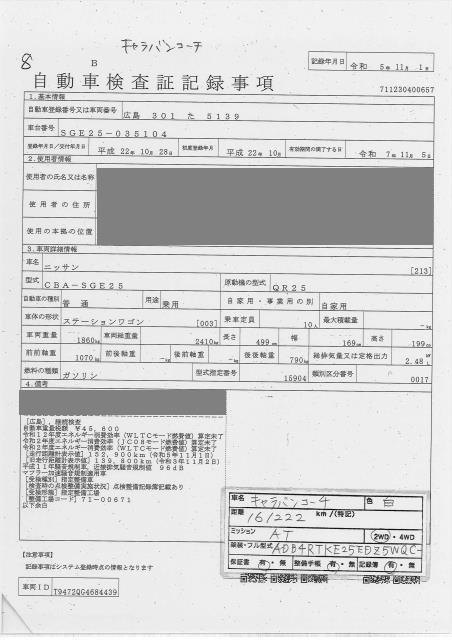 キャラバンコーチ
8
B
自動車検査証記録事項
記録年月日 令和 5年11月 1日
711230400657
1.基本情報
自動車登録番号又は車両番号 広島 301 た 5139
車台番号 SGE25-035104
登録年月日/交付年月日 平成 22年 10月 28日 初度登録年月 平成 22年 10月 有効期間の満了する日 令和 7年11月 5日
2.使用者情報
使用者の氏名又は名称
使用者の住所
使用の本拠の位置
3.車両詳細情報
車名 ニッサン [213]
型式 CBA-SGE25 原動機の型式 QR25
自動車の種別 普通 用途 乗用 自家用・事業用の別 自家用
車体の形状 ステーションワゴン [003] 乗車定員 10人 最大積載量 -kg
車両重量 1860kg 車両総重量 2410kg 長さ 499cm 幅 169cm 高さ 199cm
前前軸重 1070kg 前後軸重 -kg 後前軸重 -kg 後後軸重 790kg 総排気量又は定格出力 2.48
燃料の種類 ガソリン 型式指定番号 15904 類別区分番号 0017
4.備考
[広島],継続検査
自動車重量税額 ¥45,600
令和12年度エネルギー消費効率(WLTCモード燃費値)算定未了
令和2年度エネルギー消費効率(JC08モード燃費値)算定未了
令和2年度エネルギー消費効率(WLTCモード燃費値)算定未了
[走行距離計表示値]152,900km(令和5年11月1日)
[旧走行距離計表示値]139,800km(令和3年11月2日)
平成11年騒音規制車,近接排気騒音規制値 96dB
マフラー加速騒音規制適用車
[受検種別]指定整備車
[検査時の点検整備実施状況]点検整備記録簿記載あり
[受検形態]指定整備工場
[整備工場コード]71-00671
以下余白
車名 キャラバンコーチ 色 白
距離 161222 km/(特記)
ミッション AT 2WD・4WD
架装・フル型式 ADB4RTKE25EDZ5WQC-
保証書 有・無 整備手帳 有・無 記録簿 有・無
【注意事項】
記録事項はシステム登録時点の情報となります
車両ID T9472QG4684439